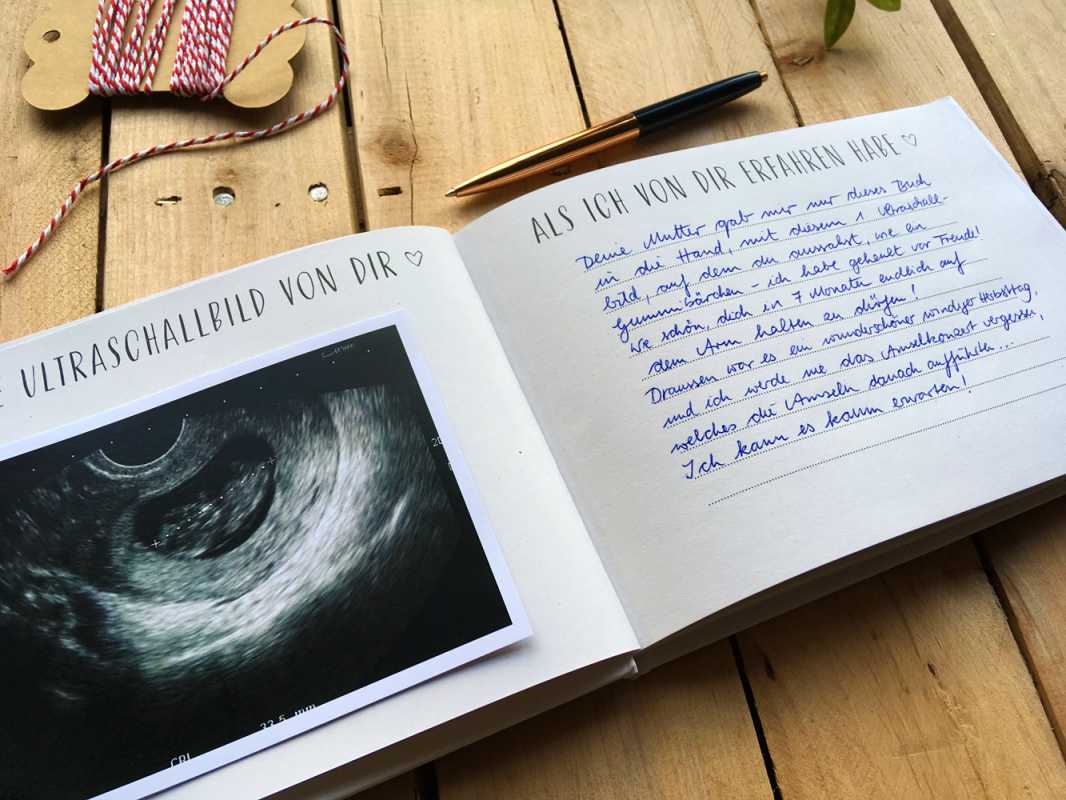 ULTRASCHALLBILD VON DIR ♡
CRL 22.5 mm
ALS ICH VON DIR ERFAHREN HABE ♡
Deine Mutter gab mir nur dieses Buch
in die Hand, mit diesem 1 Ultraschall-
bild, auf dem du aussahst, wie ein
Gummibärchen - ich habe geheult vor Freude!
Wie schön, dich in 7 Monaten endlich auf
dem Arm halten zu dürfen!
Draussen war es ein wunderschöner windiger Herbsttag,
und ich werde nie das Amselkonzert vergessen,
welches die Amseln danach aufführten...
Ich kann es kaum erwarten!